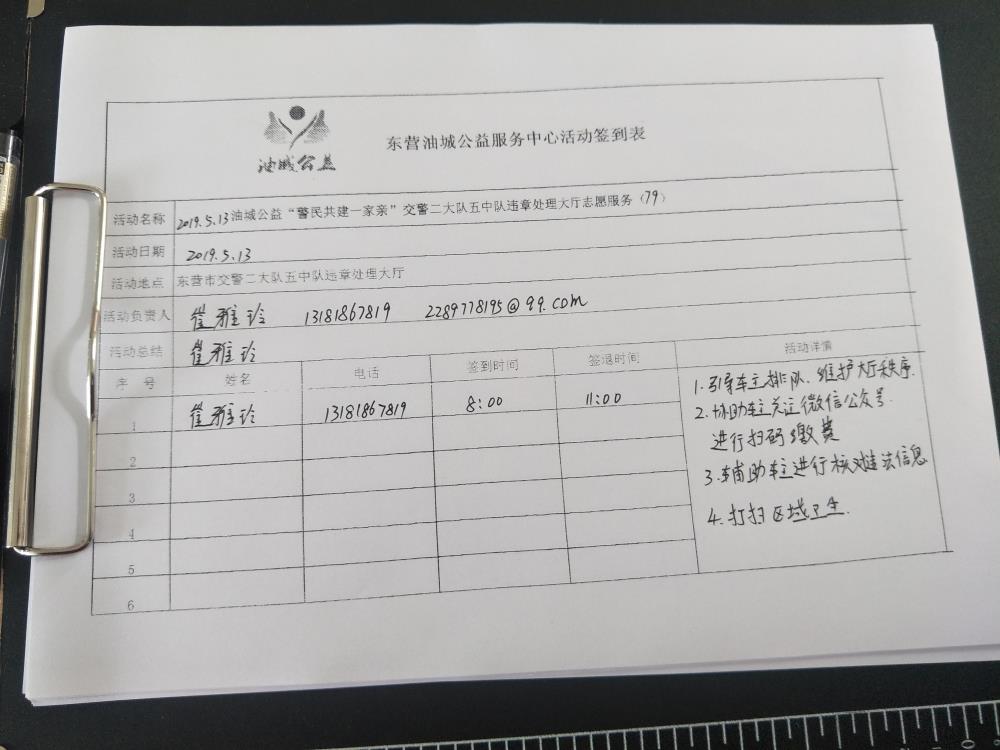 油城公益
东营油城公益服务中心活动签到表
活动名称 2019.5.13油城公益“警民共建一家亲”交警二大队五中队违章处理大厅志愿服务（79）
活动日期 2019.5.13
活动地点 东营市交警二大队五中队违章处理大厅
活动负责人 崔雅玲 13181867819 2289778195@qq.com
活动总结 崔雅玲
序 号 姓名 电话 签到时间 签退时间 活动详情
1 崔雅玲 13181867819 8:00 11:00
2
3
4
5
6
1.引导车主排队、维护大厅秩序.
2.协助车主关注微信公众号.
进行扫码缴费
3.辅助车主进行核对违法信息
4.打扫区域卫生.